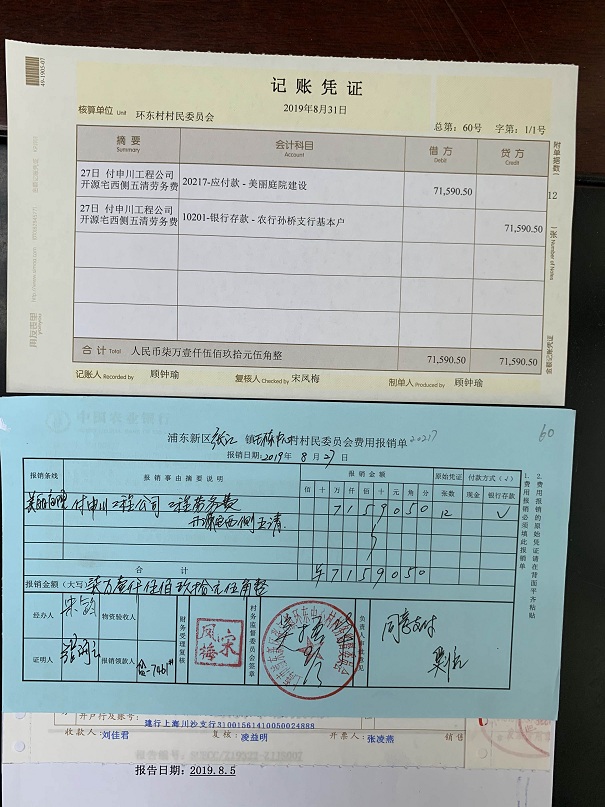 46-1903-07
记账凭证
2019年8月31日
核算单位 Unit 环东村村民委员会
总第：60号 字第：1/1号
摘要 Summary 会计科目 Account 借方 Debit 贷方 Credit
27日 付申川工程公司 开源宅西侧五清劳务费 20217-应付款 - 美丽庭院建设 71,590.50
27日 付申川工程公司 开源宅西侧五清劳务费 10201-银行存款 - 农行孙桥支行基本户 71,590.50
合计 Total 人民币柒万壹仟伍佰玖拾元伍角整 71,590.50 71,590.50
记账人 Recorded by 顾钟瑜 复核人 Checked by 宋凤梅 制单人 Produced by 顾钟瑜
附单据数 12 张 Number of Notes
中国农业银行
浦东新区张江镇环东村村民委员会费用报销单 20217
60
报销日期：2019年8月27日
报销条线 报销事由摘要说明 报销金额 原始凭证 付款方式（√）
佰 十 万 仟 佰 十 元 角 分 张数 现金 银行存款
美丽庭院 付申川工程公司 工程劳务费 7159050 12 √
开源宅西侧五清
合计 ¥7159050
报销金额（大写）柒万壹仟伍佰玖拾元伍角整
经办人 物资验收人
证明人 报销领款人
财务受理复核
宋凤梅
村务监督委员会签章
同意支付
1. 费用报销必须填此报销单
2. 费用报销的原始凭证请在背面平齐粘贴
开户行及账号：
建行上海川沙支行31001561410050024888
收款人：刘佳君 复核：凌益明 开票人：张凌燕 销售
报告日期：2019.8.5